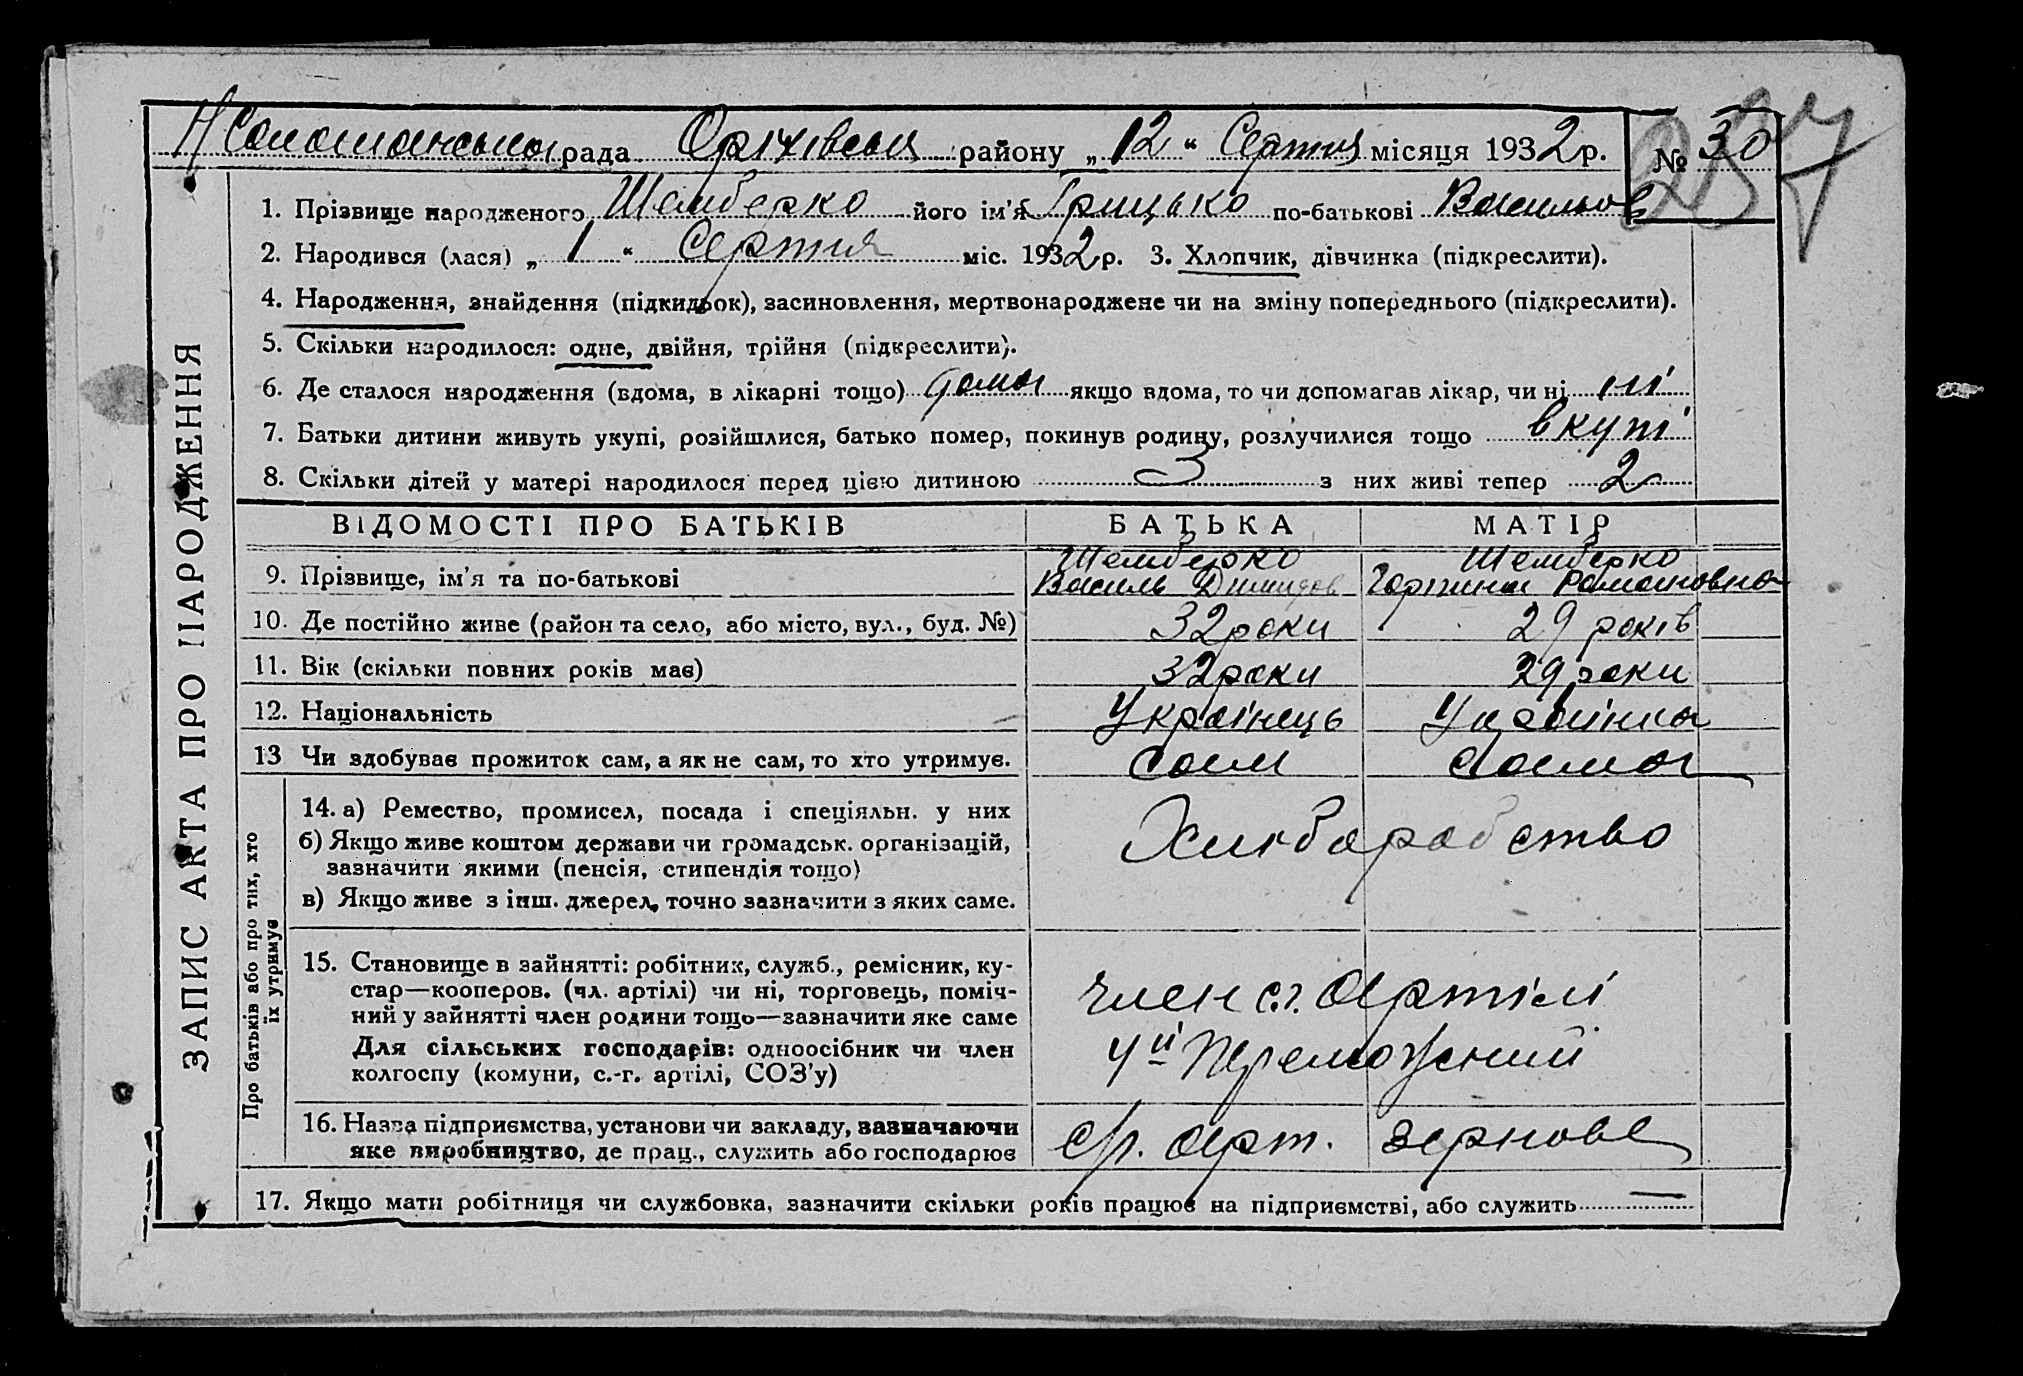 рада Оріхівська району „ 12 “ Серпня місяця 1932 р. № 30
237
1. Прізвище народженого Шемберко його ім'я Грицько по-батькові Васильов
2. Народився (лася) „ 1 “ Серпня міс. 1932 р. 3. Хлопчик, дівчинка (підкреслити).
4. Народження, знайдення (підкидьок), засиновлення, мертвонароджене чи на зміну попереднього (підкреслити).
5. Скільки народилося: одне, двійня, трійня (підкреслити).
6. Де сталося народження (вдома, в лікарні тощо) дома якщо вдома, то чи допомагав лікар, чи ні ні
7. Батьки дитини живуть укупі, розійшлися, батько помер, покинув родину, розлучилися тощо вкупі
8. Скільки дітей у матері народилося перед цією дитиною 3 з них живі тепер 2
ЗАПИС АКТА ПРО НАРОДЖЕННЯ
ВІДОМОСТІ ПРО БАТЬКІВ БАТЬКА МАТІР
Шемберко Шемберко
9. Прізвище, ім'я та по-батькові Василь Демидов Горпина Романовна
10. Де постійно живе (район та село, або місто, вул., буд. №) 32 роки 29 років
11. Вік (скільки повних років має) 32 роки 29 роки
12. Національність Українець Українка
13 Чи здобуває прожиток сам, а як не сам, то хто утримує. Сам Сама
Про батьків або про тих, хто
їх утримує
14. а) Ремество, промисел, посада і спеціяльн. у них
б) Якщо живе коштом держави чи громадськ. організацій,
зазначити якими (пенсія, стипендія тощо)
в) Якщо живе з інш. джерел, точно зазначити з яких саме.
Хліборобство
15. Становище в зайнятті: робітник, служб., ремісник, ку-
стар—кооперов. (чл. артілі) чи ні, торговець, поміч-
ний у зайнятті член родини тощо—зазначити яке саме
Для сільських господарів: одноосібник чи член
колгоспу (комуни, с.-г. артілі, СОЗ'у)
член с.г. Артілі
4й Переможний
16. Назва підприємства, установи чи закладу, зазначаючи
яке виробництво, де прац., служить або господарює
арт. зернове
17. Якщо мати робітниця чи службовка, зазначити скільки років працює на підприємстві, або служить —